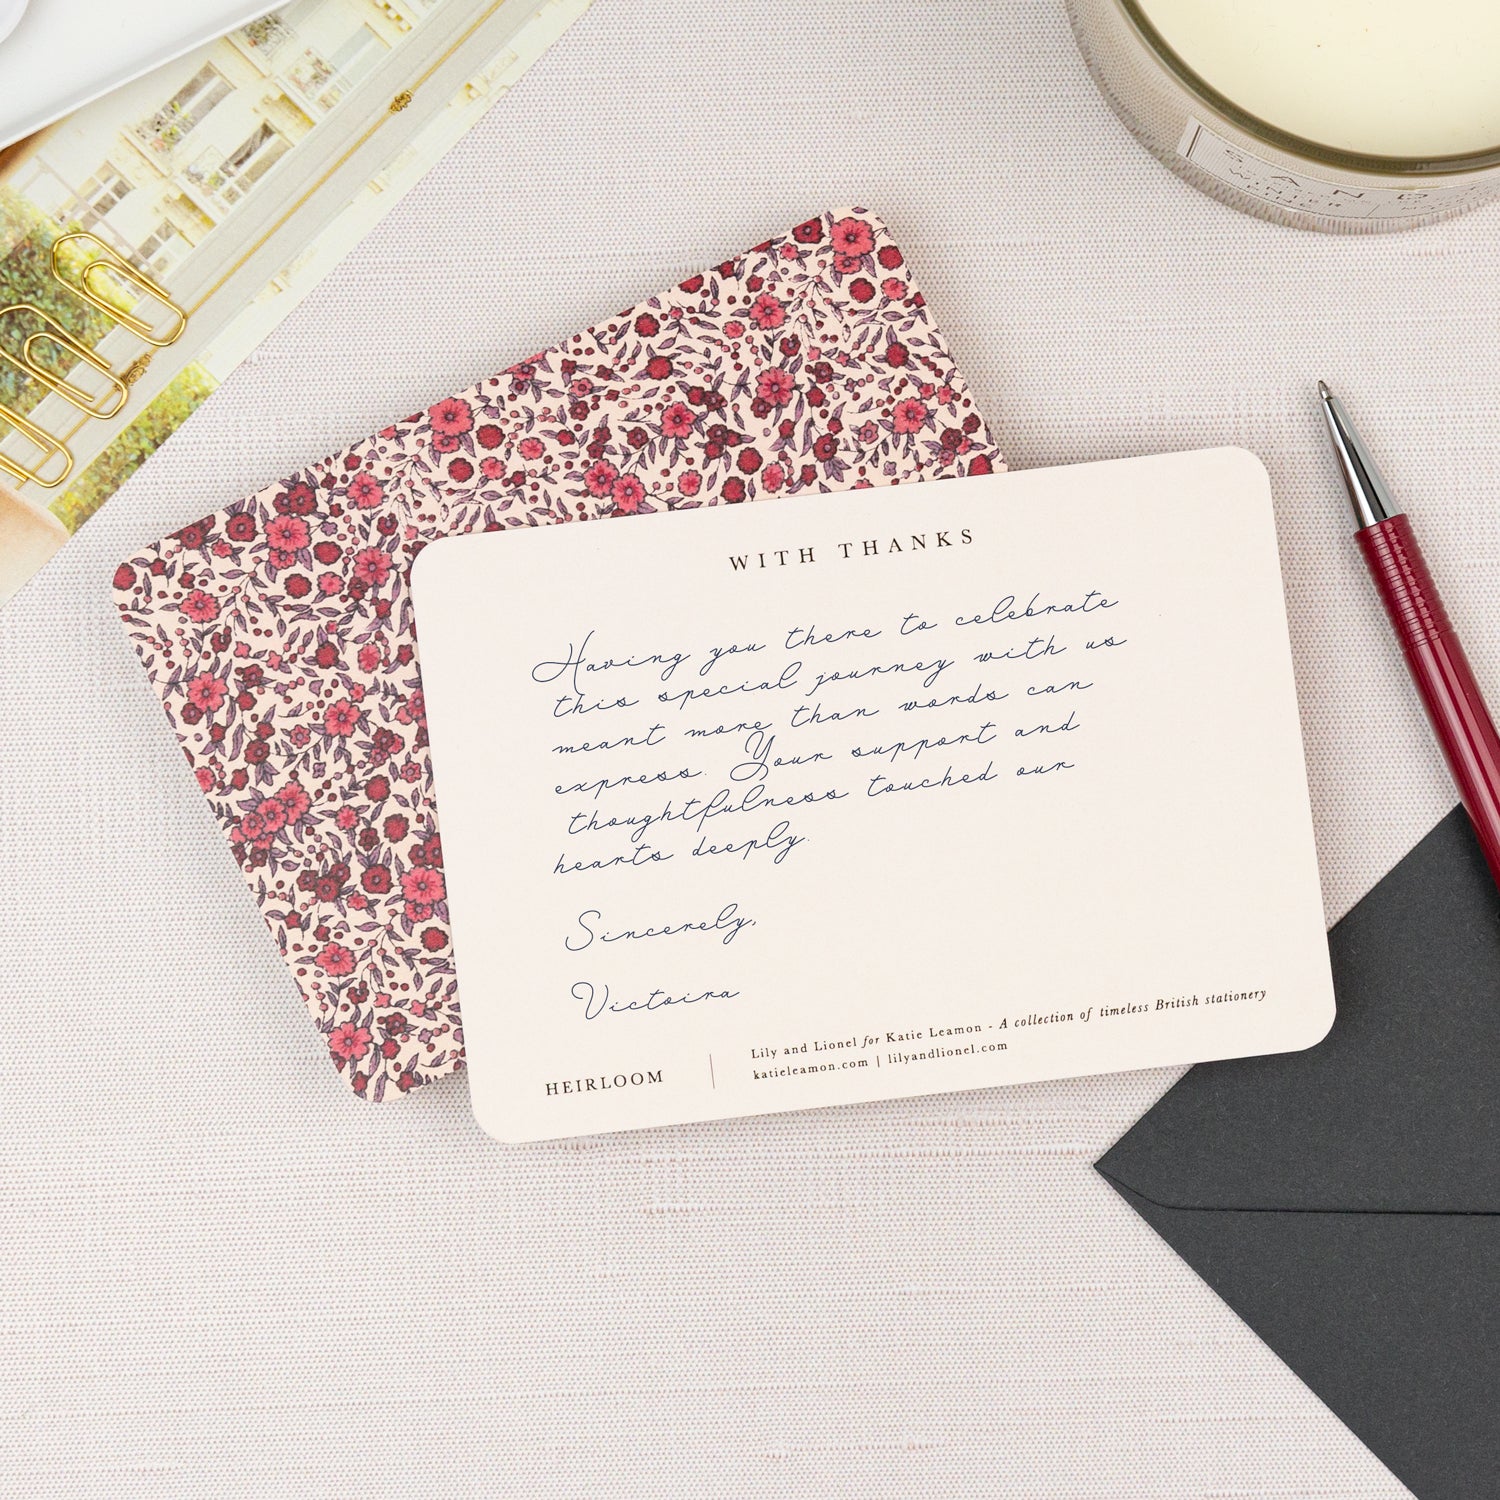 WITH THANKS
Having you there to celebrate
this special journey with us
meant more than words can
express. Your support and
thoughtfulness touched our
hearts deeply.
Sincerely,
Victoira
HEIRLOOM
Lily and Lionel for Katie Leamon - A collection of timeless British stationery
katieleamon.com | lilyandlionel.com
WINTER